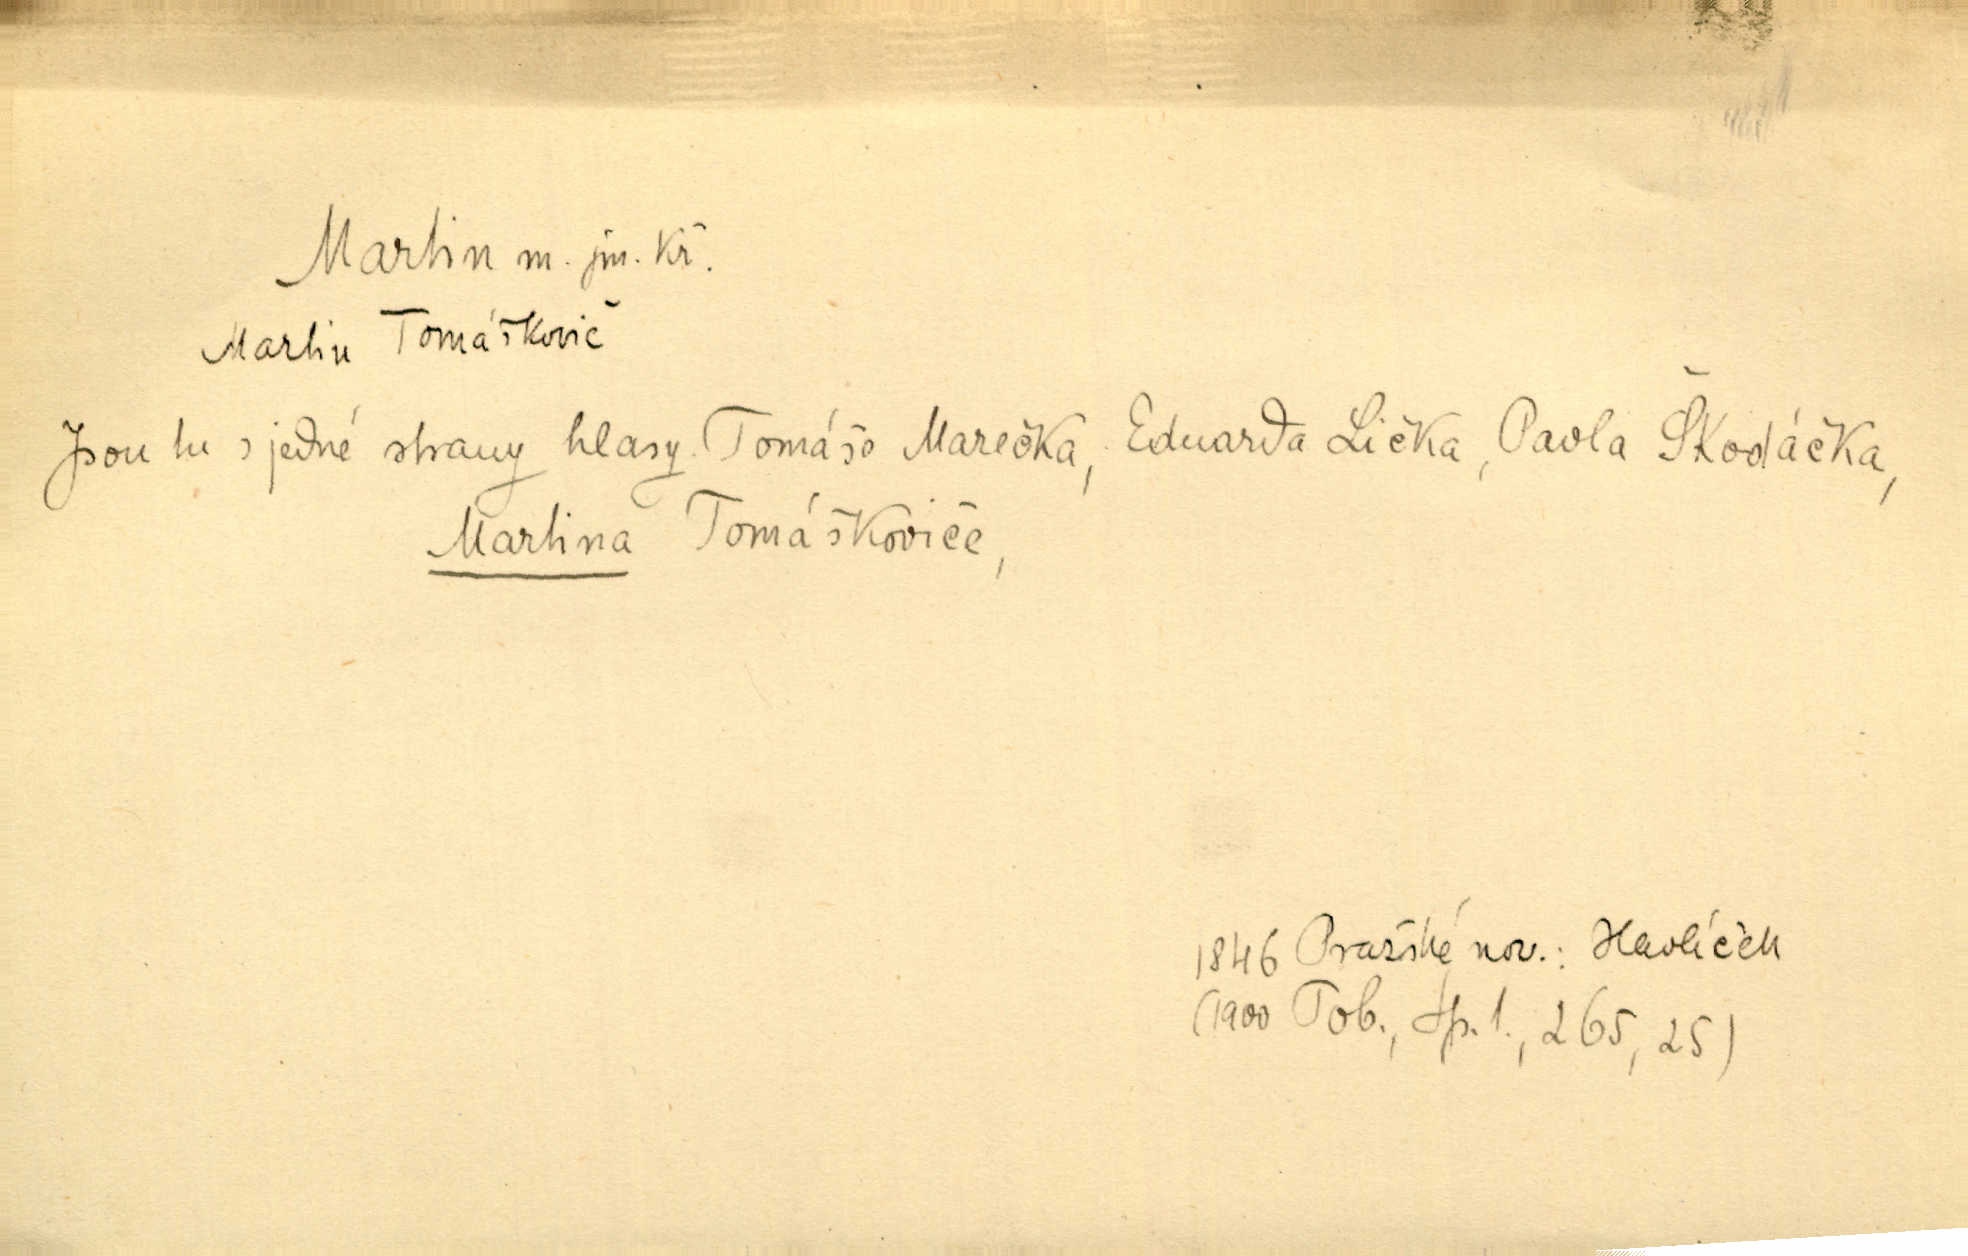 Martin m. jm. kř.
Martin Tomáškovič
Jsou tu s jedné strany hlasy Tomáše Marečka, Eduarda Lička, Pavla Škodáčka,
Martina Tomáškoviče,
1846 Pražské nov.: Havlíček
(1900 Tob., Sp. 1., 265, 25)